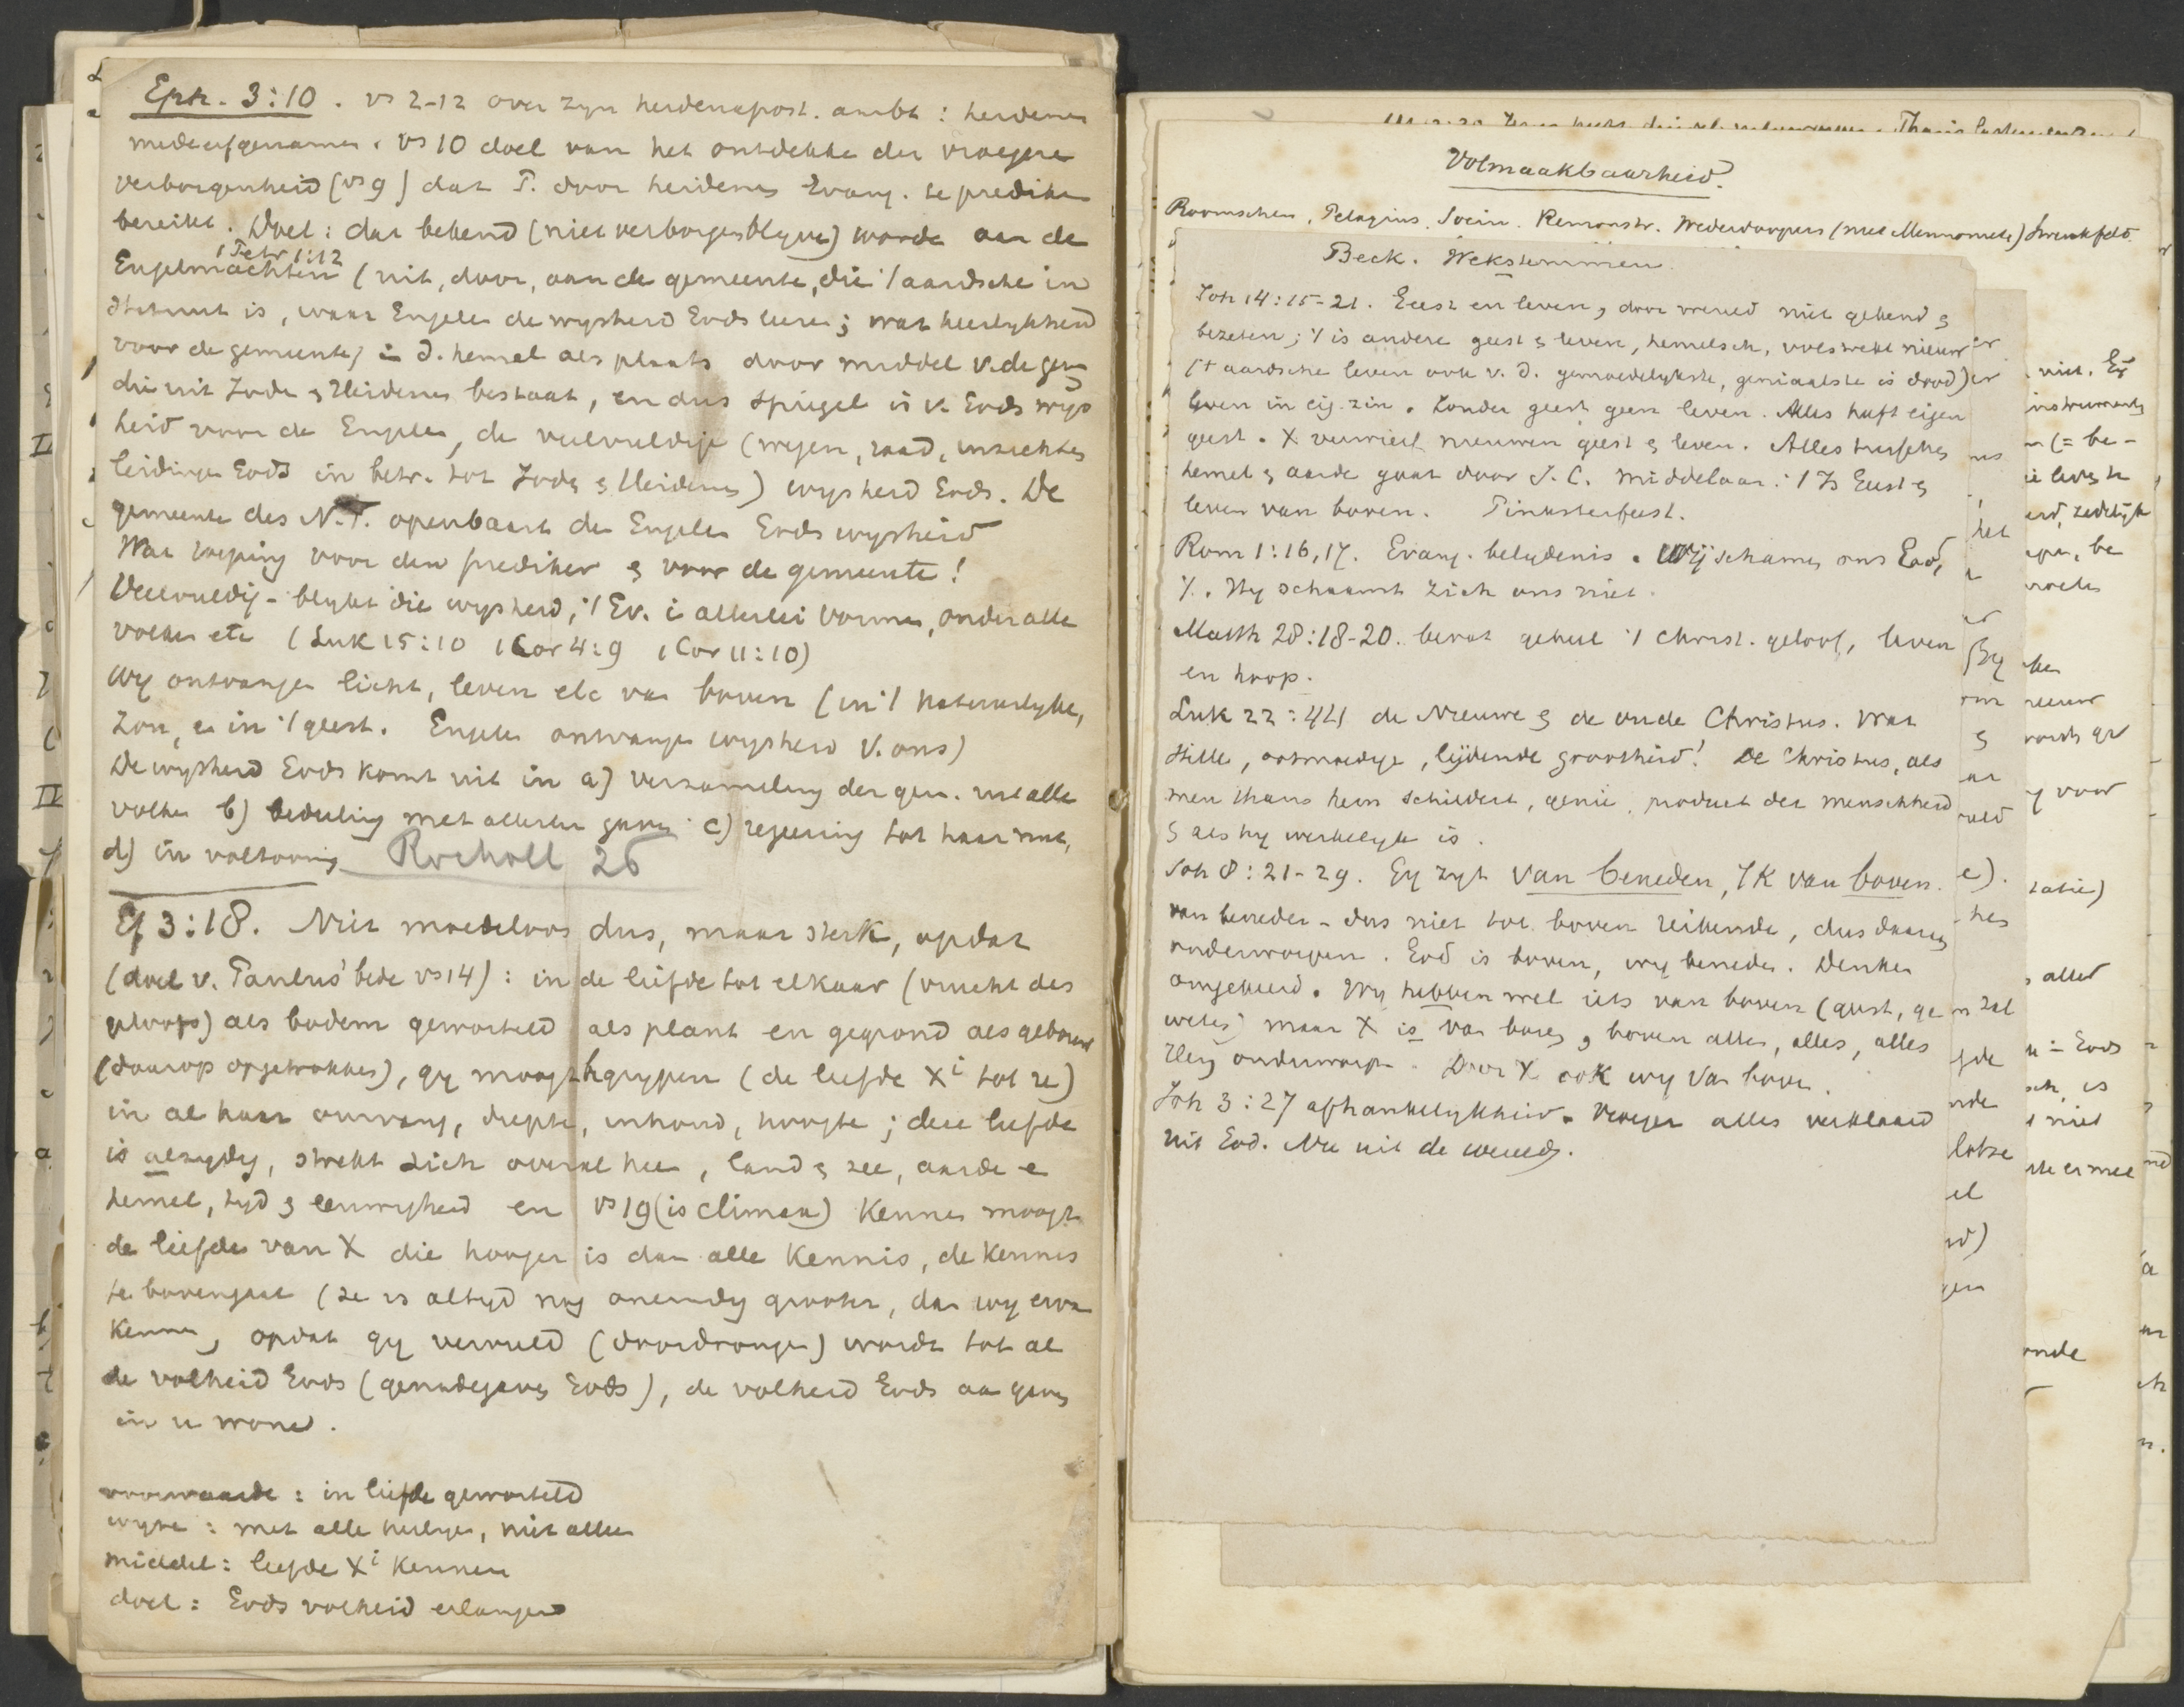 Eph. 3:10. vs 2-12 over zyn heidenapost. ambt: heidenen
medeerfgenamen. vs 10 doel van het ontdekken der vroegere
verborgenheid (vs 9) dat P. door heidenen Evang. te prediken
bereikt. Doel: dat bekend (niet verborgen blyve) worde aan de
1 Petr 1:12
Engelmachten (uit, door, aan de gemeente, die 't aardsche in
is, waar Engelen de wysheid Gods leeren; wat heerlykheid
voor de gemeente) in d. hemel als plaats door middel v. de gem
die uit Joden & Heidenen bestaat, en dus spiegel is v. Gods wys
heid voor de Engelen, de veelvuldige (wegen, raad, inzichten
leidingen Gods in betr. tot Joden & Heidenen) wysheid Gods. De
gemeente des N.T. openbaart den Engelen Gods wysheid
Wat roeping voor den prediker & voor de gemeente!
Veelvuldig - blykt die wysheid, 't Ev. in allerlei vormen, onder alle
volken etc (Luk 15:10 1 Cor 4:9 1 Cor 11:10)
Wy ontvangen licht, leven etc van boven (in 't natuurlyke,
zon, en in 't geest. Engelen ontvangen wysheid v. ons)
De wysheid Gods komt uit in a) verzameling der gem. uit alle
volken b) bedeeling met allerlei gaven c) regeering tot haar nut,
d) in voltooiing Rocholl 26
Ef 3:18. Niet moedeloos dus, maar sterk, opdat
(doel v. Paulus' bede vs 14): in de liefde tot elkaar (vrucht des
geloofs) als bodem geworteld als plant en gegrond als gebouw
(daarop opgetrokken), gy moogt begrypen (de liefde Xi tot ze)
in al haar omvang, diepte, inhoud, hoogte; deze liefde
is alzydig, strekt zich overal heen, land & zee, aarde e
hemel, tyd & eeuwigheid en vs 19 (is climax) kennen moogt
de liefde van X die hooger is dan alle kennis, de kennis
te bovengaat (ze is altyd nog oneindig grooter, dan wy ervan
kennen, opdat gy vervuld (doordrongen) wordt tot al
de volheid Gods (genadegaven Gods), de volheid Gods aan gaven
in u wone.
voorwaarde: in liefde geworteld
wyze: met alle heiligen, niet alleen
middel: liefde Xi kennen
doel: Gods volheid erlangen
Volmaakbaarheid.
Roomschen, Pelagius, Socin. Remonstr. Wederdoopers (met Mennonieten) Swenkfeld.
Beck. Wekstemmen.
Joh 14:15-21. Geest en leven, door wereld niet gekend &
bezeten; 't is andere geest & leven, hemelsch, volstrekt nieuw
('t aardsche leven ook v. d. gemoedelykste, geniaalste is dood)
leven in eig. zin. Zonder geest geen leven. Alles heeft eigen
geest. X verwierf nieuwen geest & leven. Alles tusschen
hemel & aarde gaat door J. C. middelaar: 't Is Geest &
leven van boven. Pinksterfeest.
Rom 1:16,17. Evang. belydenis. Wij schamen ons God,
X. Hy schaamt zich ons niet.
Matth 28:18-20. bevat geheel 't Christ. geloof, leven
en hoop.
Luk 22:44 de Nieuwe & de oude Christus. Wat
stille, ootmoedige, lijdende grootheid! De Christus, als
men thans hem schildert, genie, product der menschheid
& als hy werkelyk is.
Joh 8:21-29. Gy zyt van beneden, Ik van boven.
van beneden - dus niet tot boven reikende, dus daaraan
onderworpen. God is boven, wy beneden. Denken
omgekeerd. Wy hebben wel iets van boven (geest, ge
weten) maar X is van boven, boven allen, alles, alles
Hem onderworpen. Door X ook wy van boven.
Joh 3:27 afhankelykheid. Vroeger alles verklaard
uit God. Nu uit de wereld.